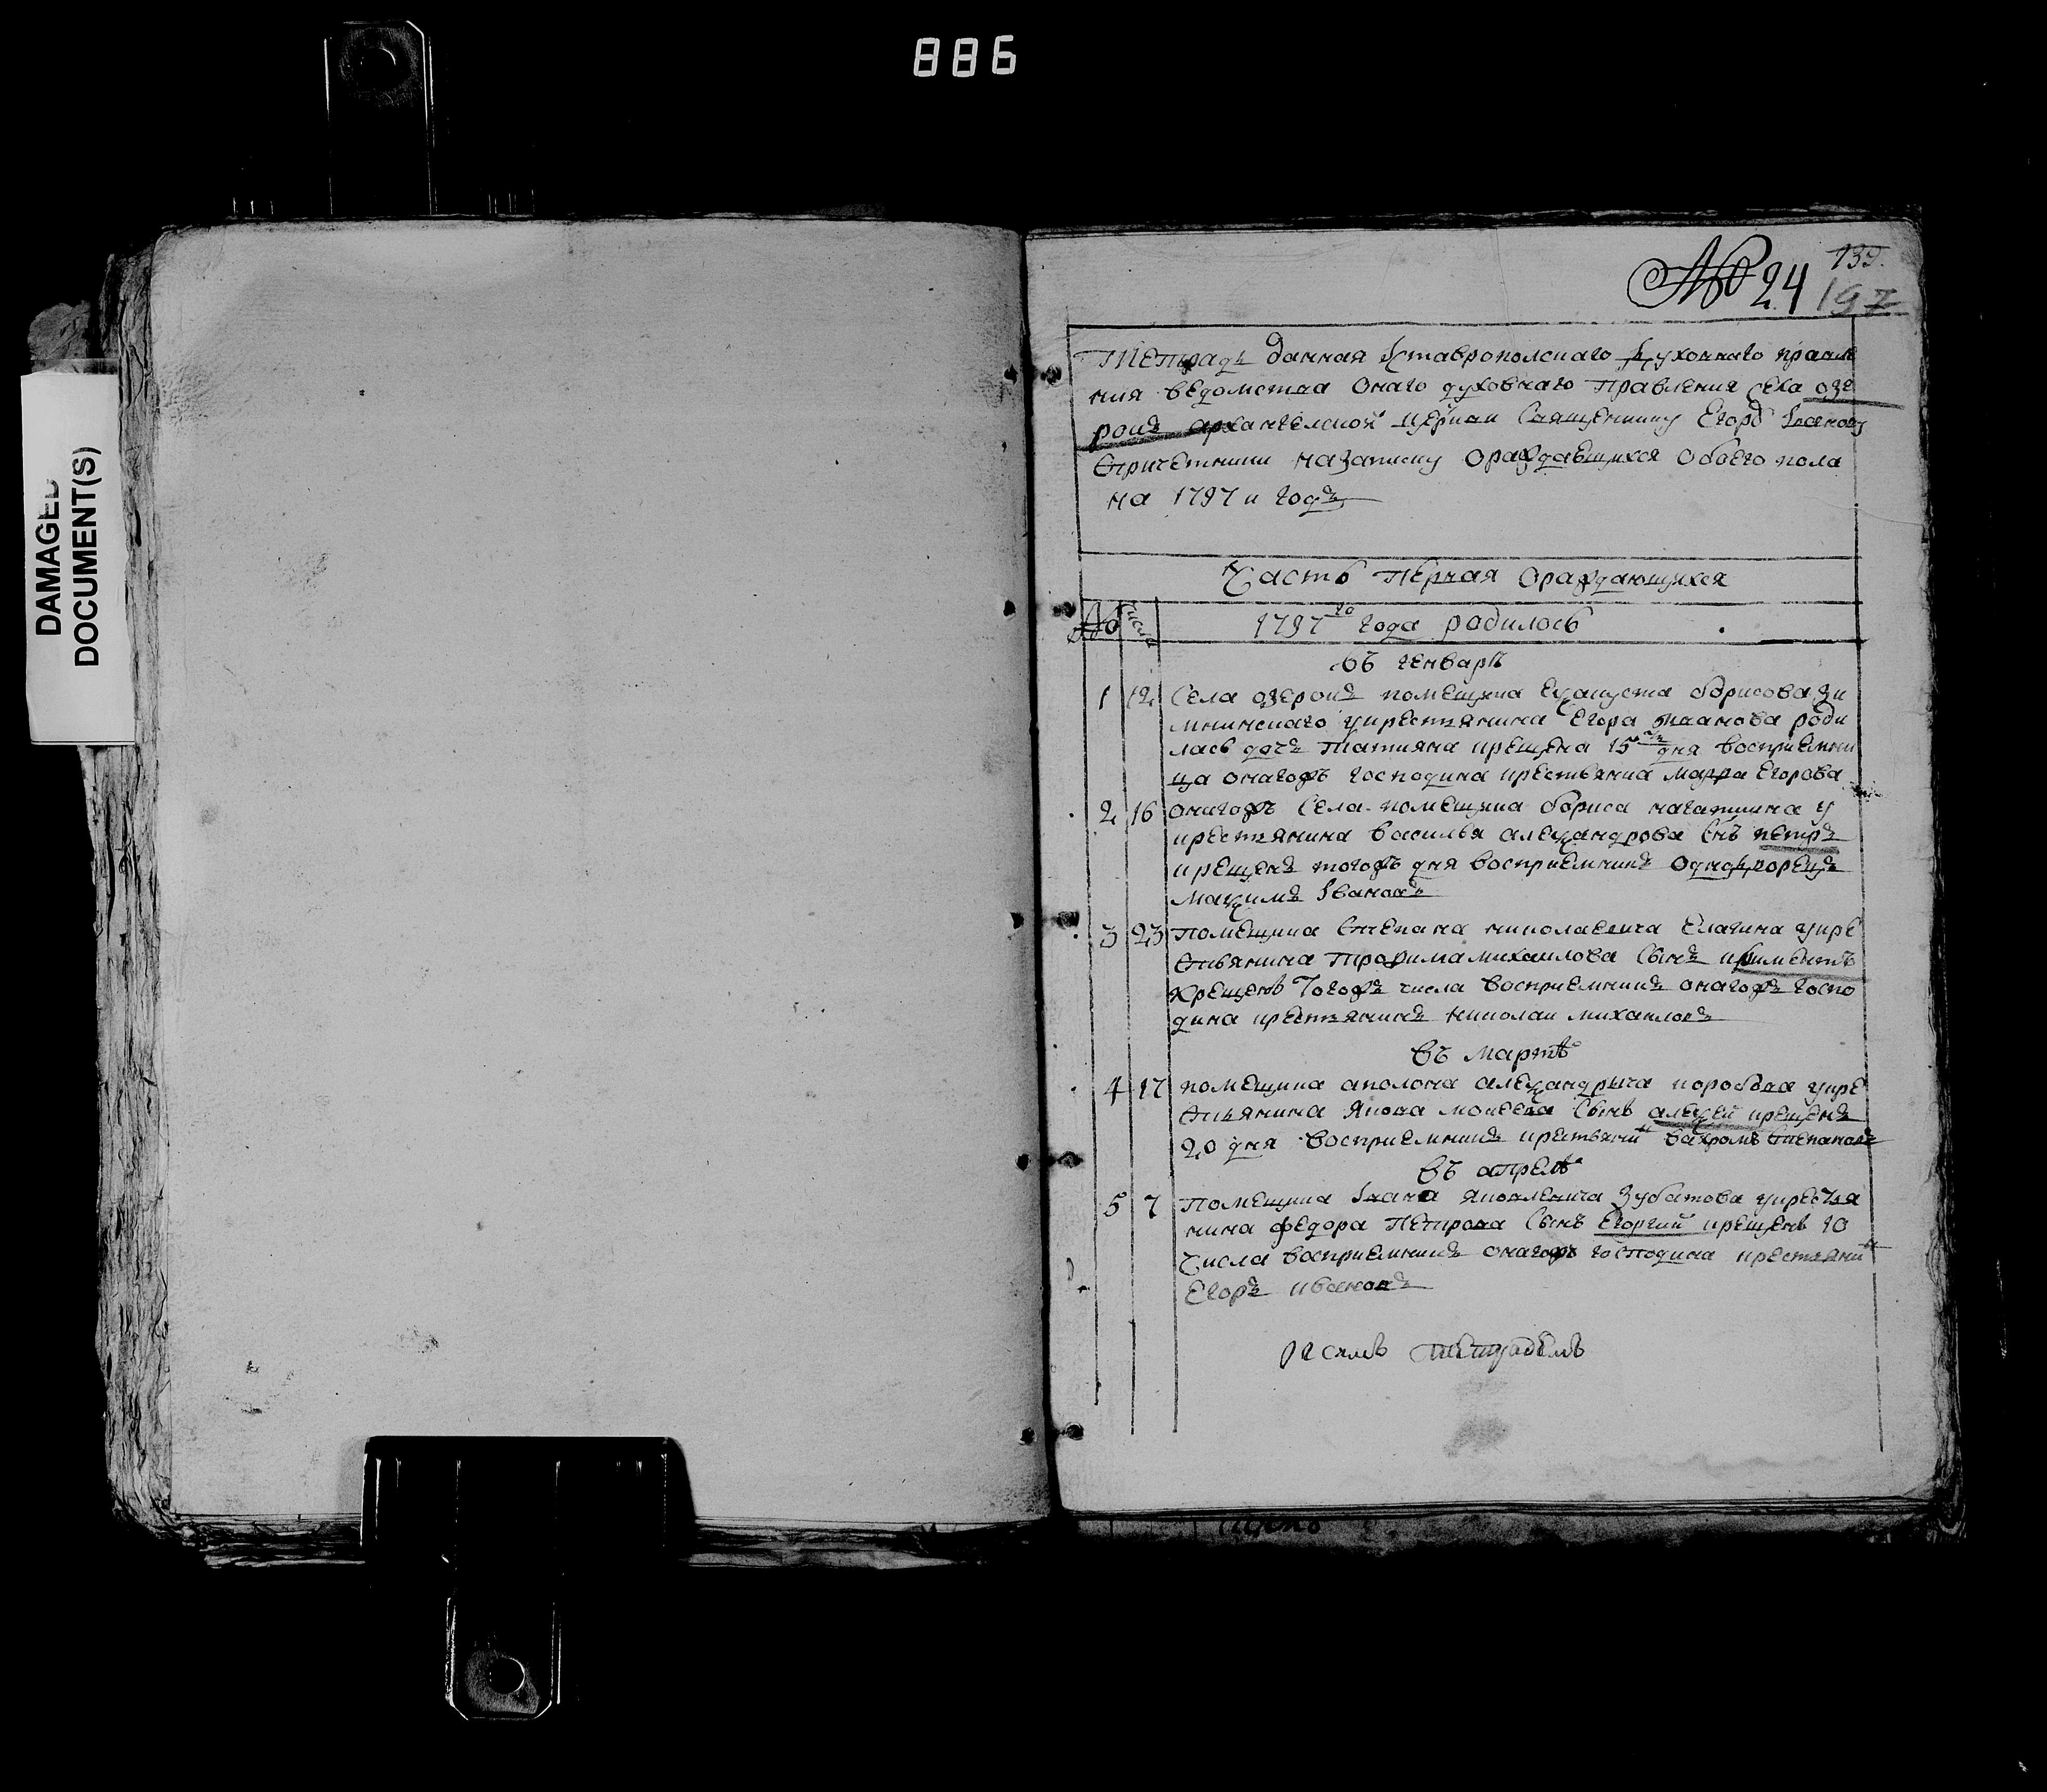 886
DAMAGED
DOCUMENT(S)
№ 24
139.
197
Тетрадь данная Iставропольскаго духовнаго правле
ния ведомства онаго духовнаго правления села озе
ровъ архангелской церкви священнику Егору Iванову
спричетники назаписку ораждаещихся обоего пола
на 1797 и годъ
Часть первая ораждающихся
№ число 1797го года родилось
въ генварѣ
1 12 Села озеровъ помещика Евѯапуста борисова зи
мнинскаго укрестянина Егора иванова роди
лась дочь татияна крещена 15 дня восприемни
ца онагожъ господина крестьянка марѳа Егорова
2 16 онагожъ села помещика бориса нагаткина у
крестянина василья алеѯандрова снъ петръ
крещенъ тогожъ дня восприемникъ однодворецъ
маѯимъ Iвановъ
3 23 помещика степана николаевича Елагина укре
стьянина трофима михаилова сынъ климентъ
крещенъ тогожъ числа восприемникъ онагожъ госпо
дина крестянинъ николаи михаиловъ
въ мартѣ
4 17 помещика аполона алеѯандрыча коробова укре
стьянина якова моисева сынъ алеѯей крещенъ
20 дня восприемникъ крестьянинъ степановъ
въ апрелѣ
5 7 помещика Iвана яковлевича зубатова укрестья
нина федора петрова сынъ Егоргий крещенъ 10
числа восприемникъ онагожъ господина крестянинъ
Егоръ ивановъ
тетраделъ